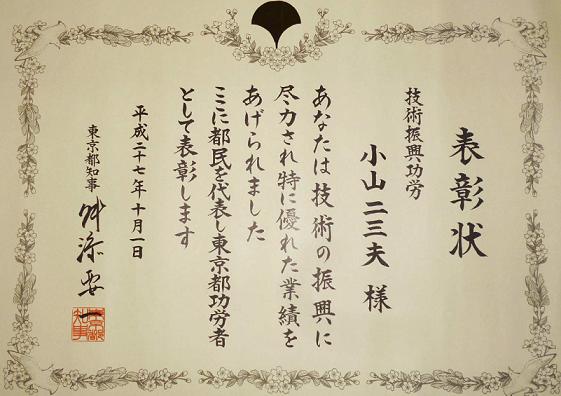 表彰状
技術振興功労
小山二三夫様
あなたは技術の振興に
尽力され特に優れた業績を
あげられました
ここに都民を代表し東京都功労者
として表彰します
平成二十七年十月一日
東京都知事 舛添要一